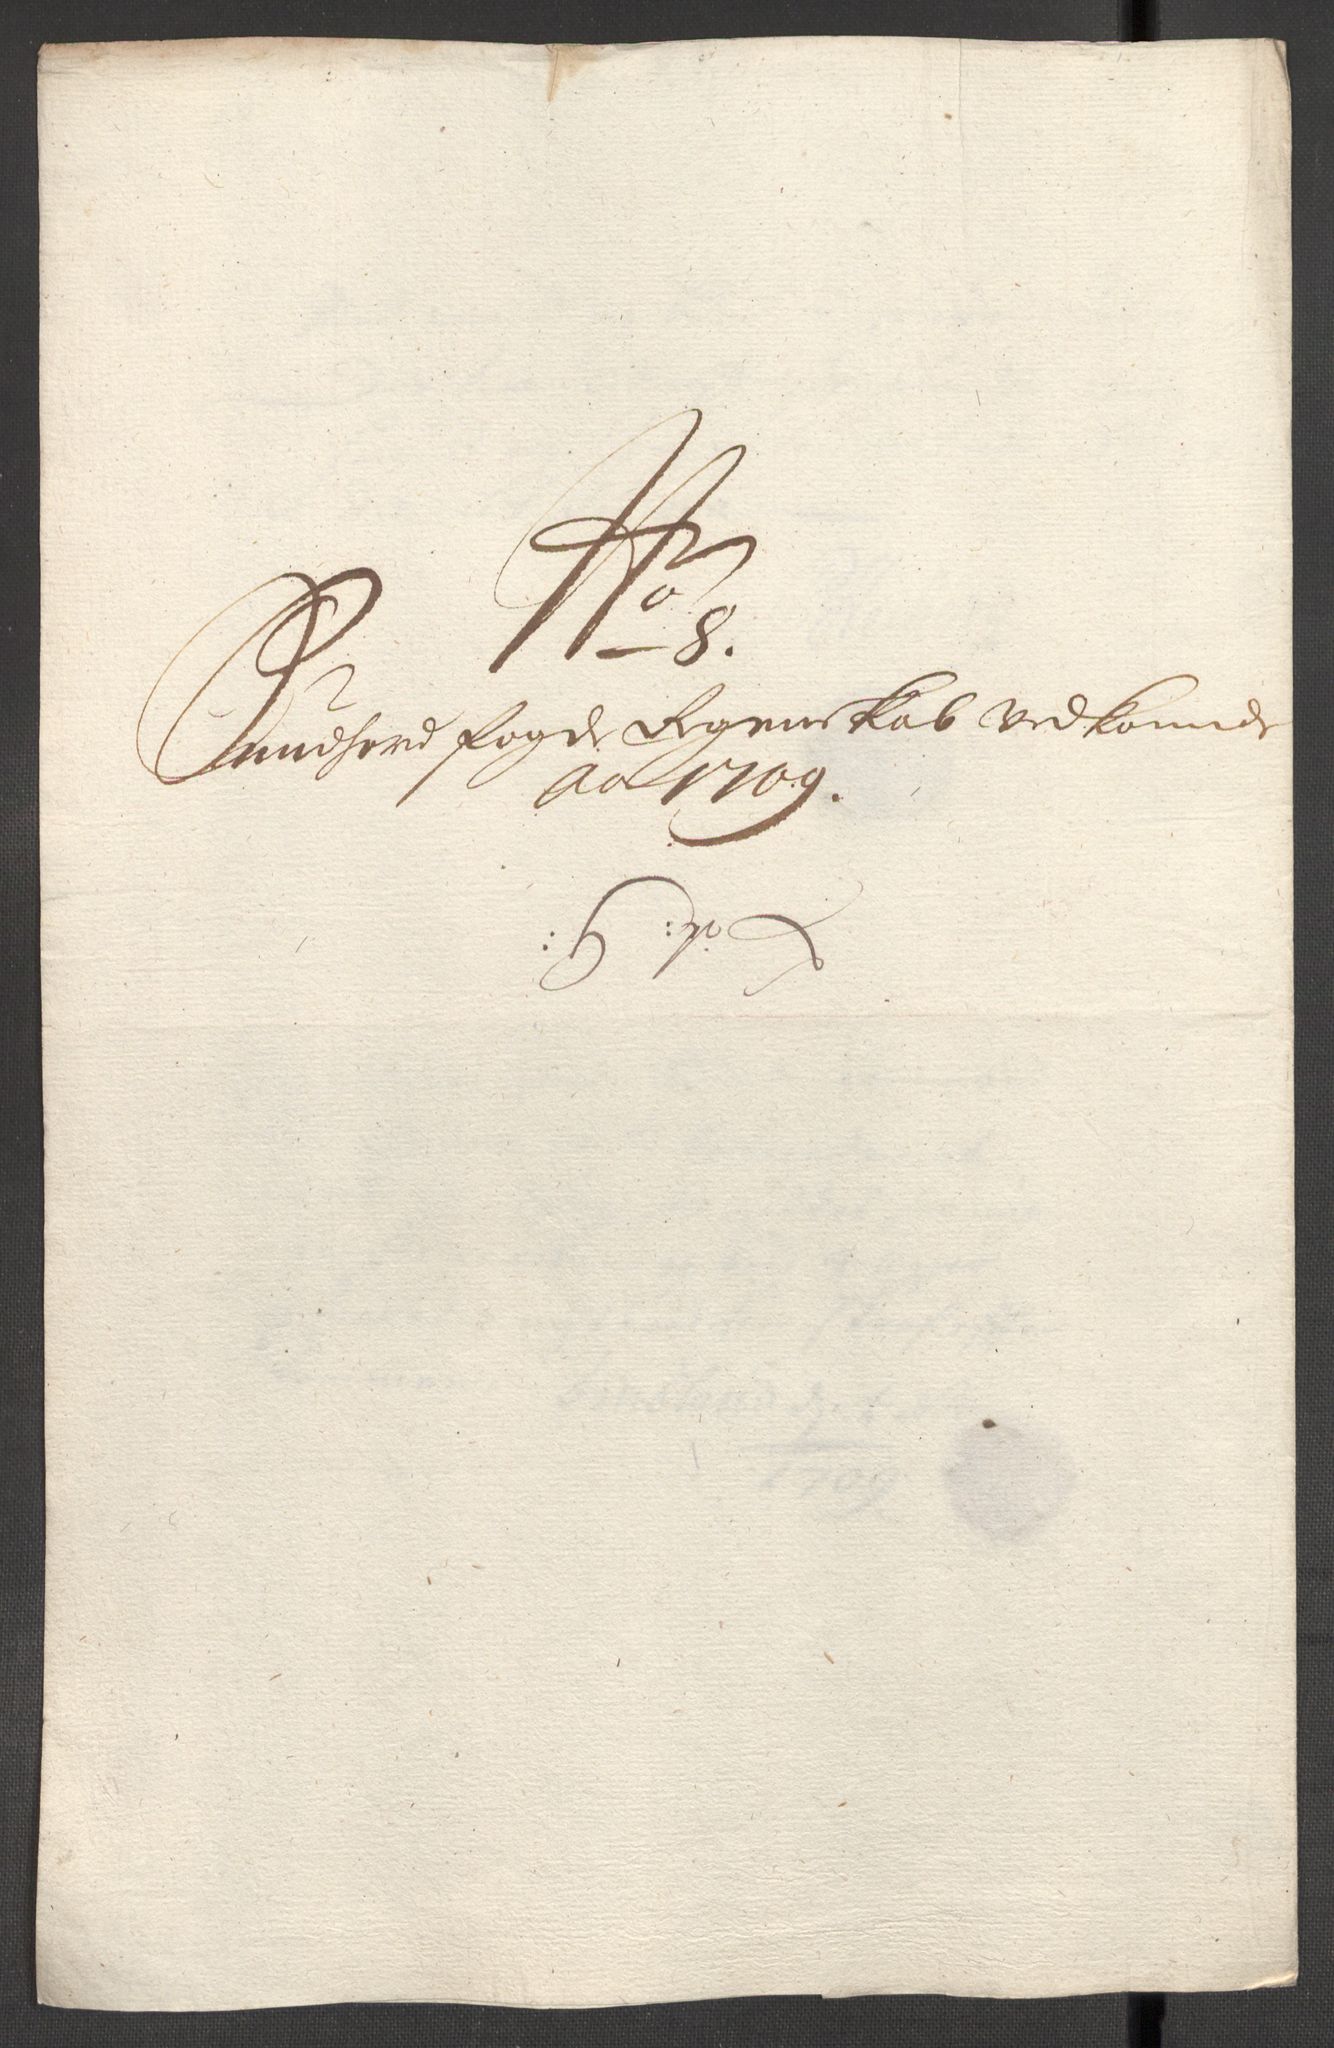 No 8.
Sundhord fogde Regenskab Vedkomde
Ao 1709.